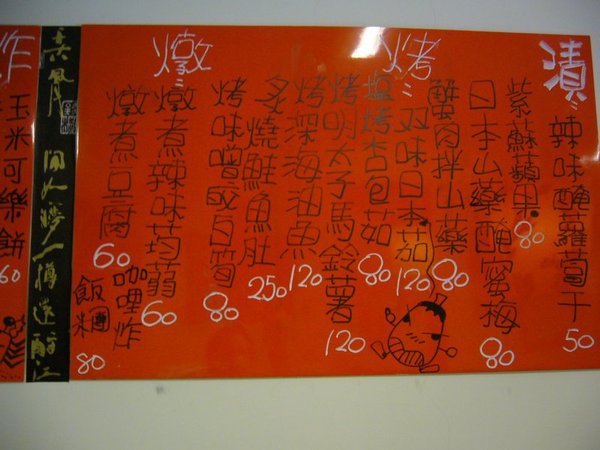 漬
辣味醃蘿蔔干
50
紫蘇蘋果
80
日本山藥醃蜜梅
80
蟹肉拌山藥
80
烤
双味日本茄
120
塩烤杏包茄
80
烤明太子馬鈴薯
120
烤深海油魚
120
炙燒鮭魚肚
250
烤味噌成白筍
80
燉
燉煮辣味蒟蒻
60
燉煮豆腐
60
咖哩炸
飯糰
80
炸
玉米可樂餅
60